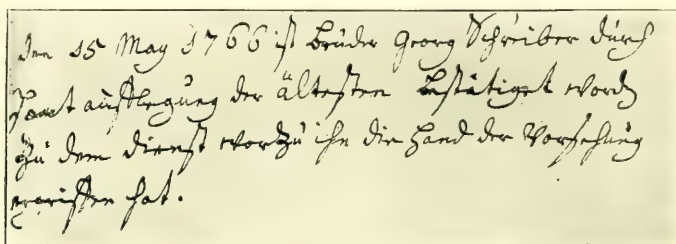 den 15 May 1766 ist bruder Georg Schreiber durch
Hant aufflegung der ältesten bestätiget worden
zu dem dienst worzu ihn die Hand der Vorsehung
ergriffen hat.